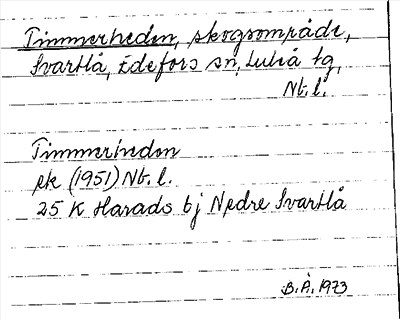 Timmerheden, skogsområde,
Svartlå, Edefors sn, Luleå tg,
Nb.l.
Timmerheden
ek (1951) Nb.l.
25 K Harads bj Nedre Svartlå
B.Å. 1973